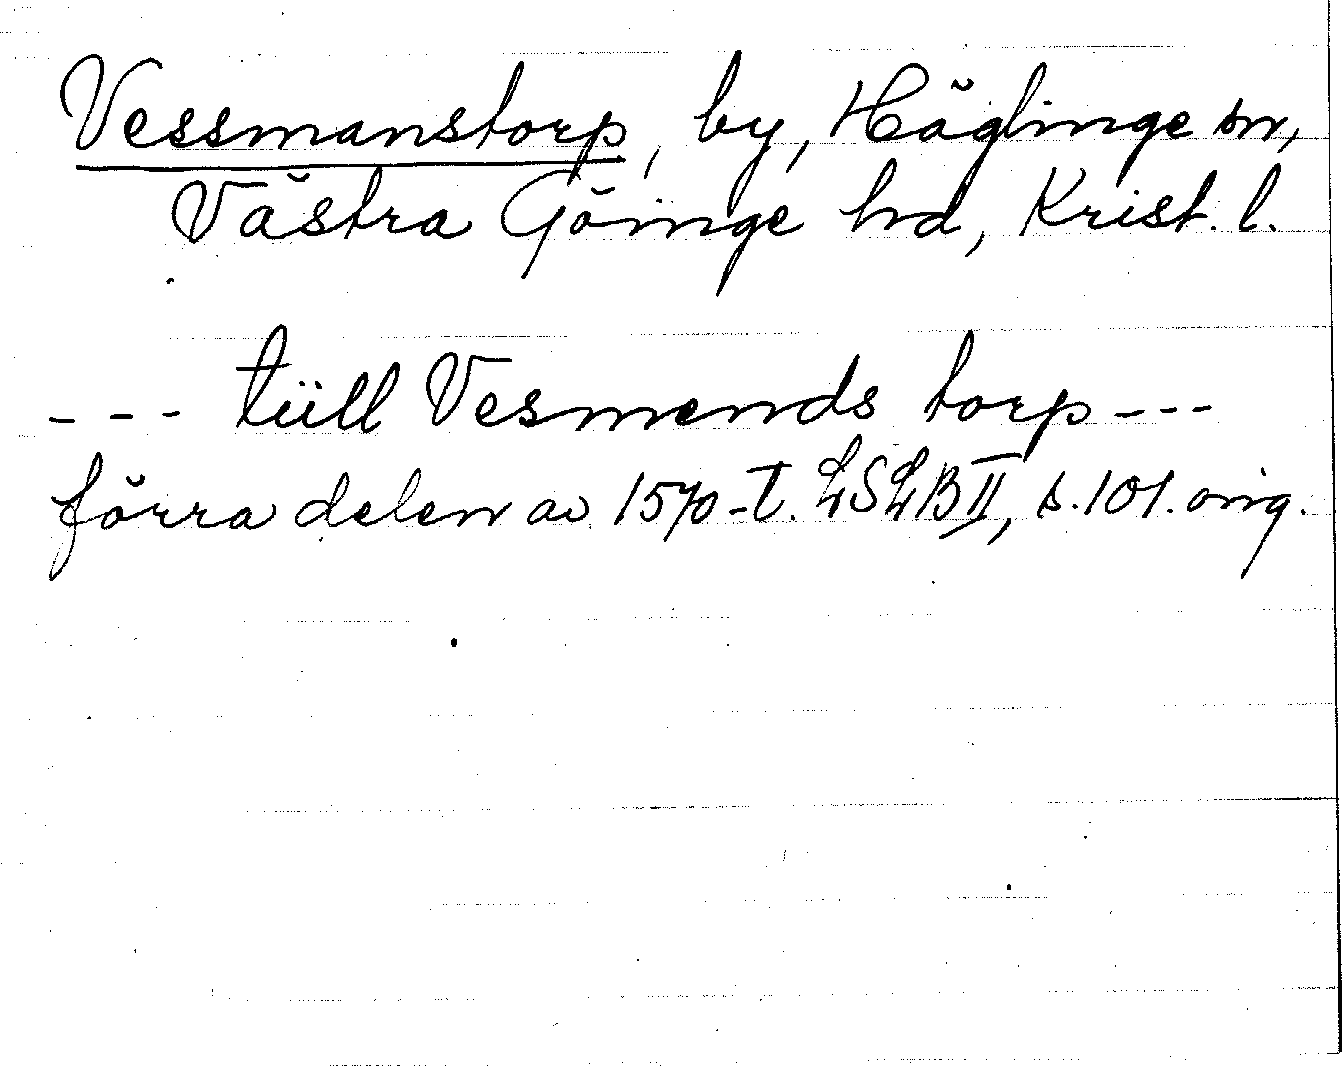 Vessmanstorp, by, Häglinge sn,
Västra Göinge hd, Krist. l.
--- tüll Vesmends torp ---
förra delen av 1570-t. LSLB II, s. 101. orig.